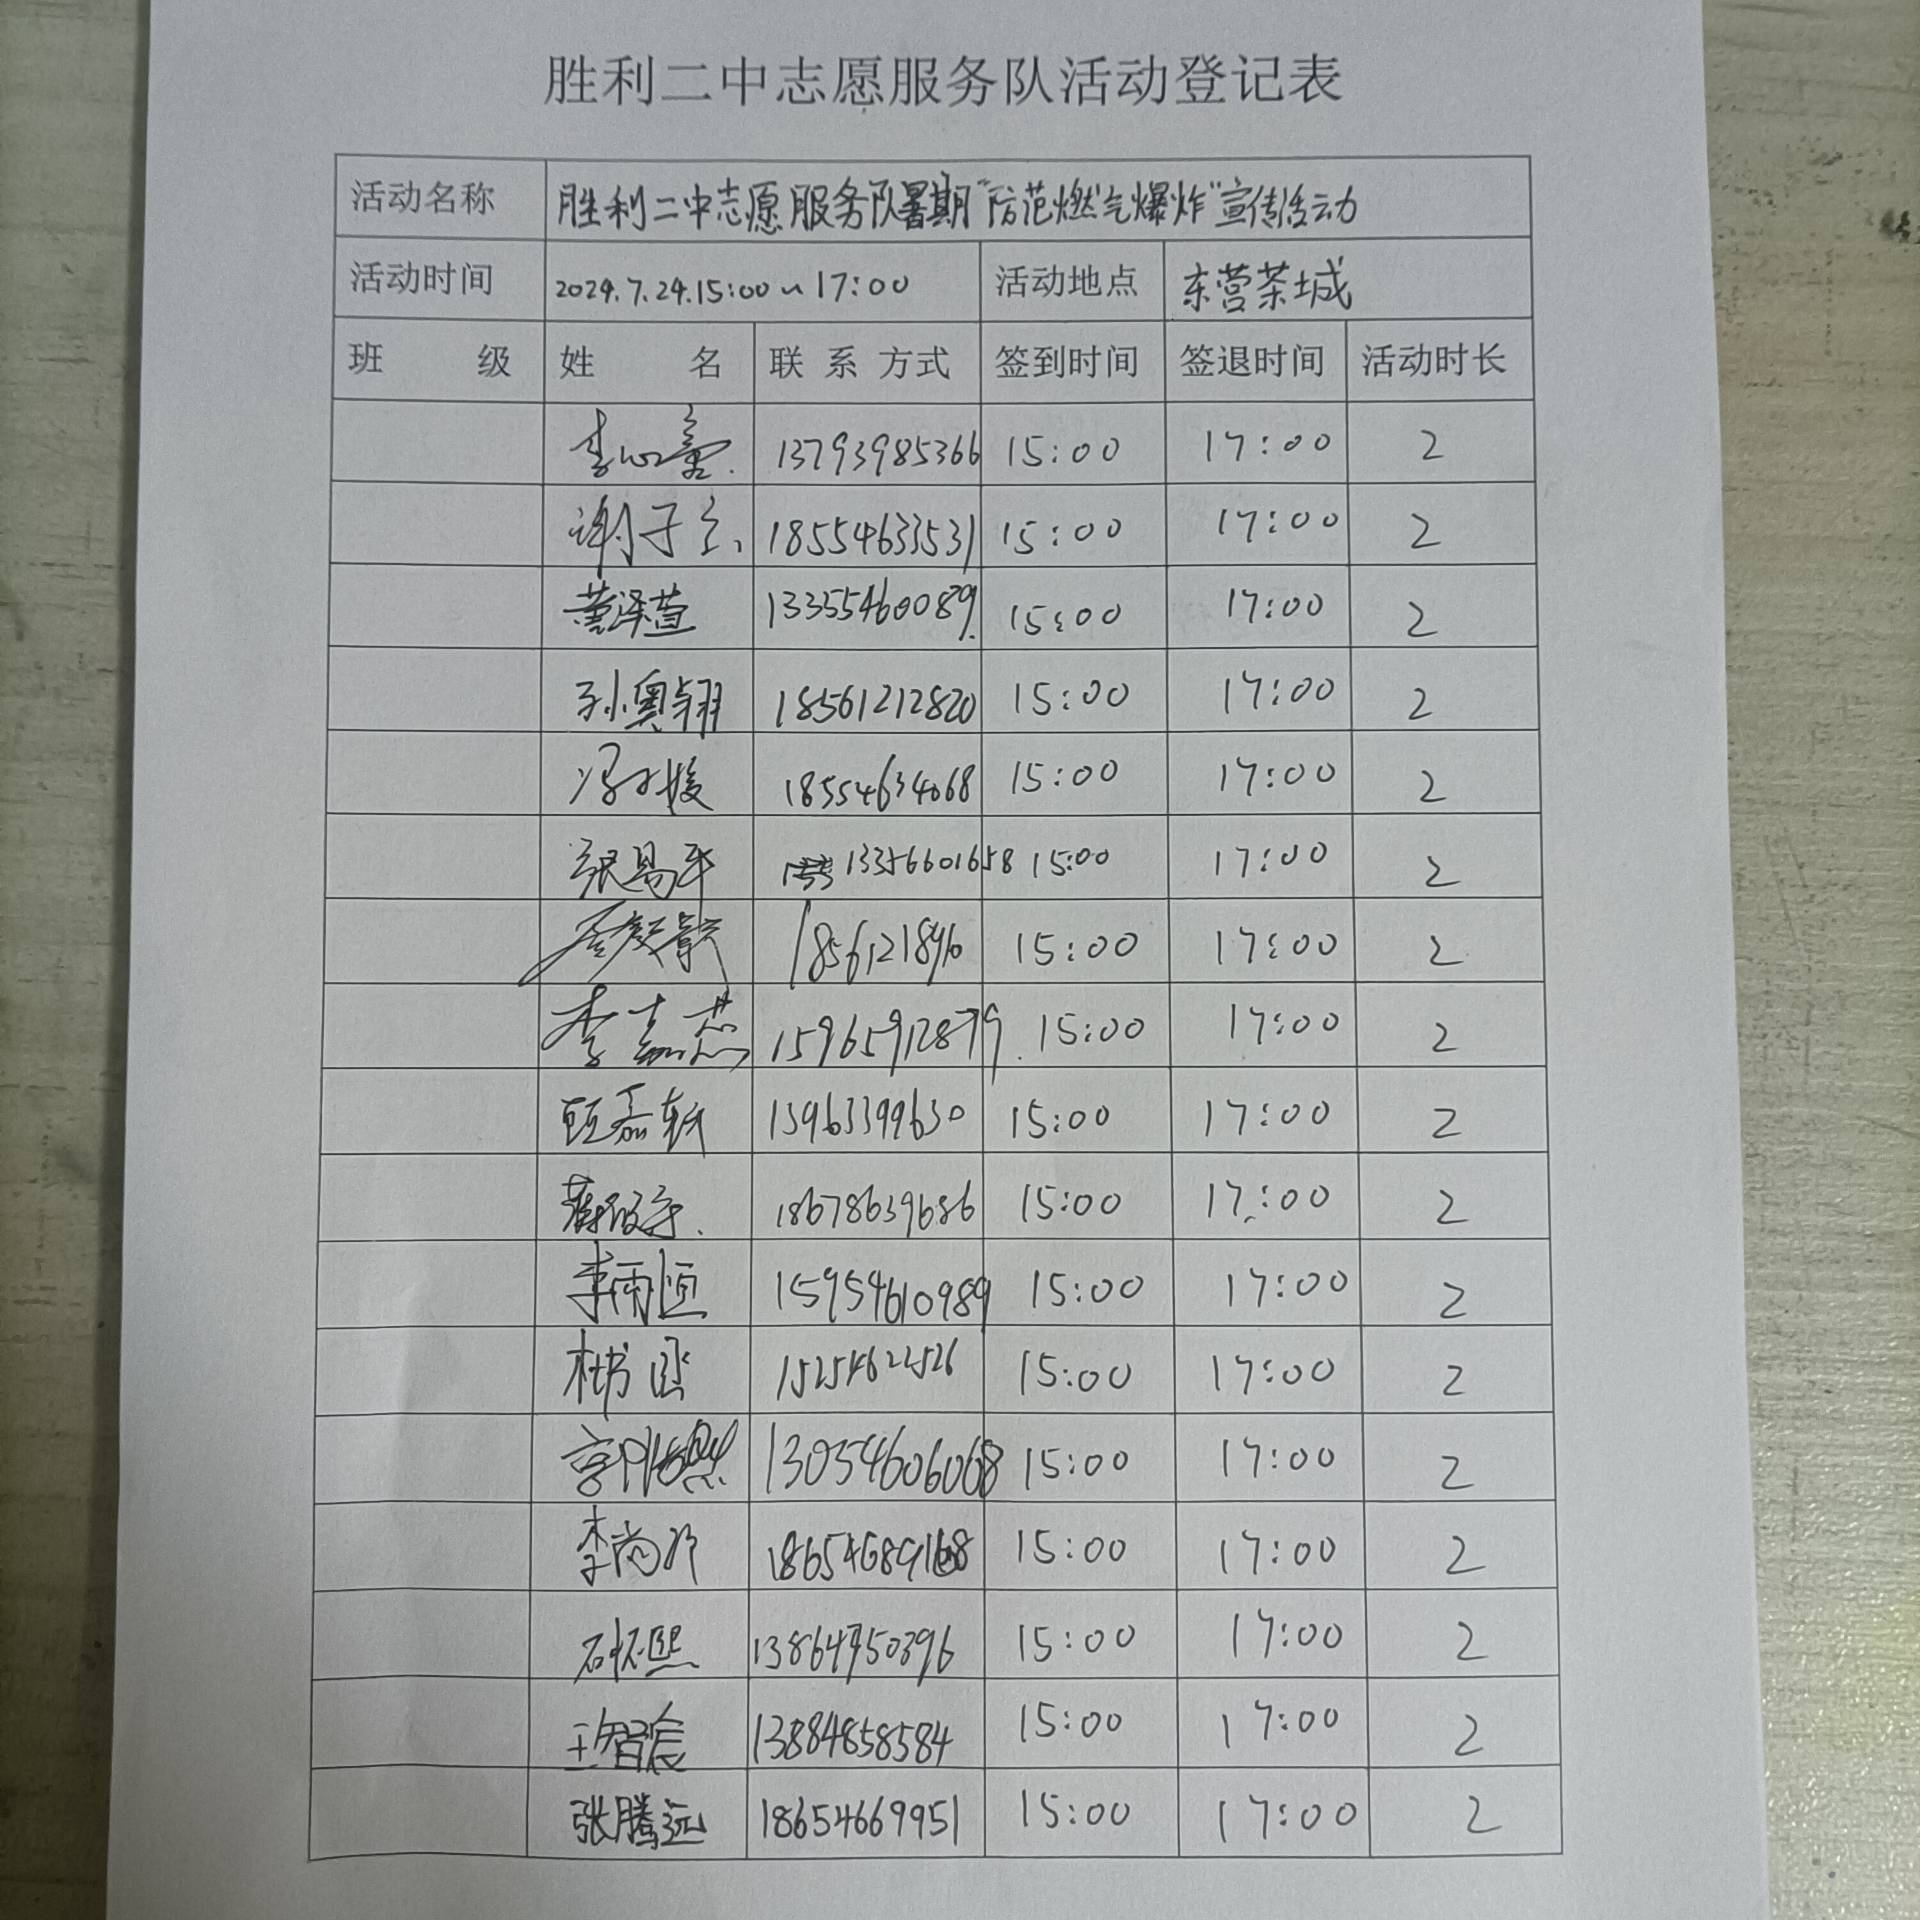 胜利二中志愿服务队活动登记表
活动名称 胜利二中志愿服务队暑期"防范燃气爆炸"宣传活动
活动时间 2024.7.24.15:00~17:00 活动地点 东营茶城
班 级 姓 名 联系方式 签到时间 签退时间 活动时长
李心童 13793985366 15:00 17:00 2
谢子 18554633531 15:00 17:00 2
董泽萱 13355460089 15:00 17:00 2
孙奥翔 18561212820 15:00 17:00 2
冯 媛 18554634068 15:00 17:00 2
张易平 13356601658 15:00 17:00 2
15:00 17:00 2
李嘉芯 15965912879 15:00 17:00 2
顾嘉轩 13963399630 15:00 17:00 2
薛 宇 18678639686 15:00 17:00 2
李雨恒 15954610989 15:00 17:00 2
杜书 15254622526 15:00 17:00 2
13054606068 15:00 17:00 2
李尚 18654689168 15:00 17:00 2
石怀熙 13864750396 15:00 17:00 2
王智宸 13884858584 15:00 17:00 2
张腾远 18654669951 15:00 17:00 2